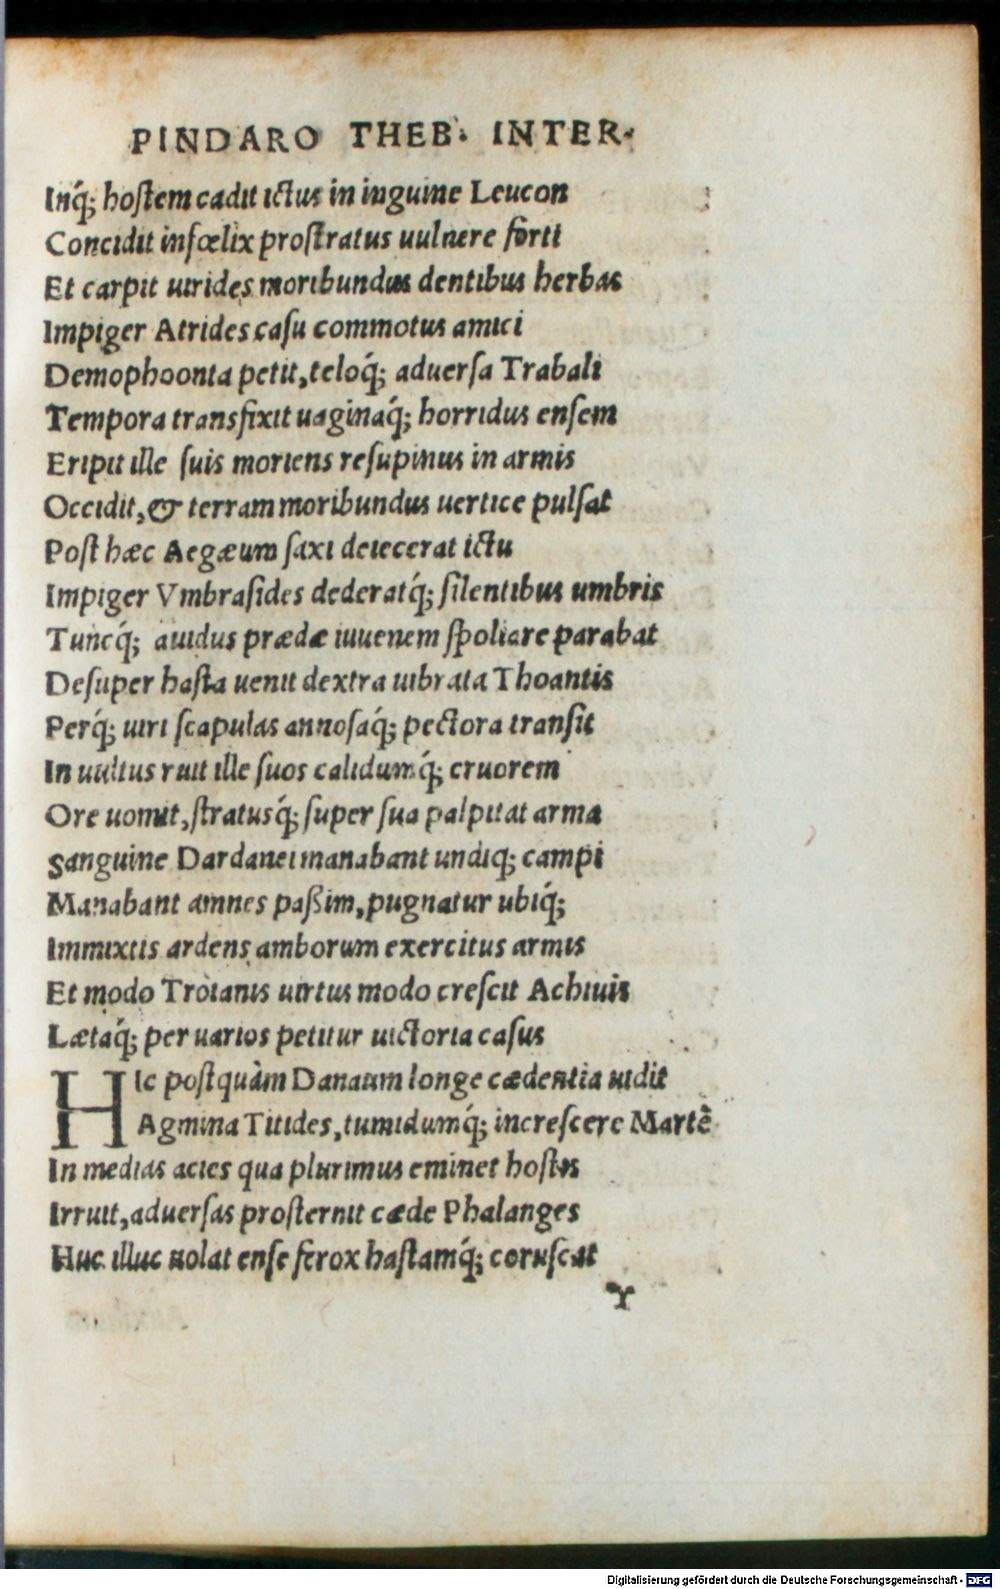 PINDARO THEB. INTER.
Inq́; hoſtem cadit ictus in inguine Leucon
Concidit infœlix proſtratus uulnere forti
Et carpit uirides moribundus dentibus herbas
Impiger Atrides caſu commotus amici
Demophoonta petit, teloq́; aduerſa Trabali
Tempora transfixit uaginaq́; horridus enſem
Eripit ille ſuis moriens reſupinus in armis
Occidit, & terram moribundus uertice pulſat
Poſt hæc Aegæum ſaxi deiecerat ictu
Impiger Vmbraſides dederatq́; ſilentibus umbris
Tuncq́; auidus prædæ iuuenem ſpoliare parabat
Deſuper haſta uenit dextra uibrata Thoantis
Perq́; uiri ſcapulas annoſaq́; pectora tranſit
In uultus ruit ille ſuos calidumq́; cruorem
Ore uomit, ſtratusq́; ſuper ſua palpitat arma
Sanguine Dardanei manabant undiq; campi
Manabant amnes paßim, pugnatur ubiq́;
Immixtis ardens amborum exercitus armis
Et modo Troianis uirtus modo creſcit Achiuis
Lætaq́; per uarios petitur uictoria caſus
HIc poſtquàm Danaum longe cædentia uidit
Agmina Titides, tumidumq́; increſcere Martē
In medias acies qua plurimus eminet hoſtis
Irruit, aduerſas proſternit cæde Phalanges
Huc illuc uolat enſe ferox haſtamq́; coruſcat
Y
Digitalisierung gefördert durch die Deutsche Forschungsgemeinschaft - DFG